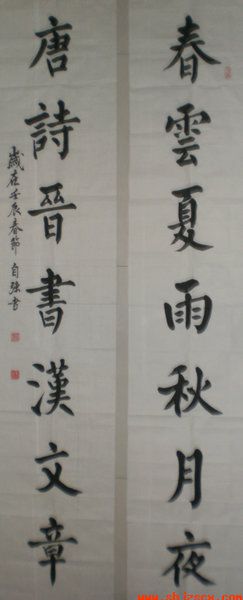 春雲夏雨秋月夜
唐詩晉書漢文章
歲在壬辰春節自強書
www.shlzscw.com